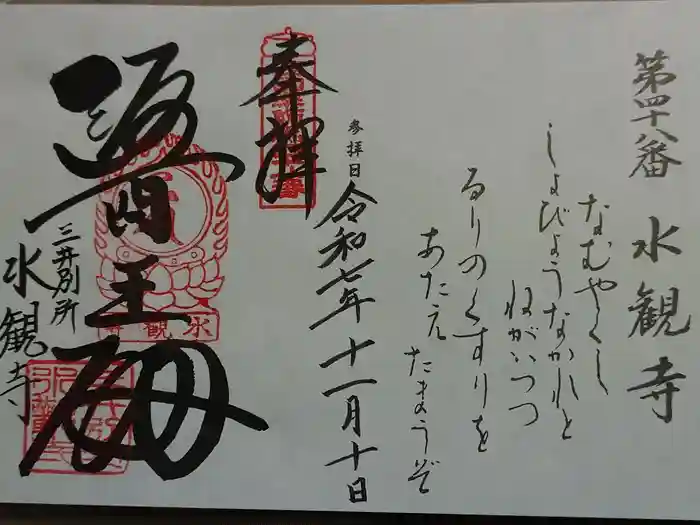 第四十八番 水観寺
なむやくし
しょびょうなかれと
ねがいつつ
るりのくすりを
あたえたまうぞ
参拝日
令和七年十一月十日
奉拝
醫王殿
三井別所
水観寺
水観寺